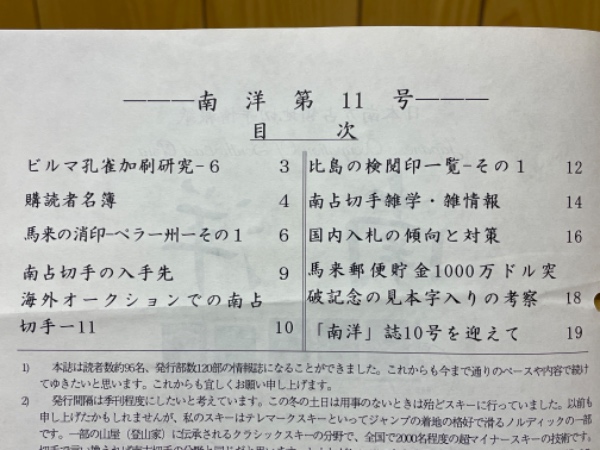 ———南 洋 第 11 号———
目 次
ビルマ孔雀加刷研究-6 3
購読者名簿 4
馬来の消印-ペラー州-その1 6
南占切手の入手先 9
海外オークションでの南占
切手ー11 10
比島の検閲印一覧-その1 12
南占切手雑学・雑情報 14
国内入札の傾向と対策 16
馬来郵便貯金1000万ドル突
破記念の見本字入りの考察 18
「南洋」誌10号を迎えて 19
1) 本誌は読者数約96名、発行部数120部の情報誌になることができました。これからも今まで通りのペースや内容で続け
てゆきたいと思います。これからも宜しくお願い申し上げます。
2) 発行間隔は季刊程度にしたいと考えています。この冬の土日は用事のないときは殆どスキーに行っていました。以前も
申し上げたかもしれませんが、私のスキーはテレマークスキーといってジャンプの着地の格好で滑るノルディックの一部
です。一部の山屋（登山家）に伝承されるクラシックスキーの分野で、全国で2000名程度の超マイナースキーの技術です。